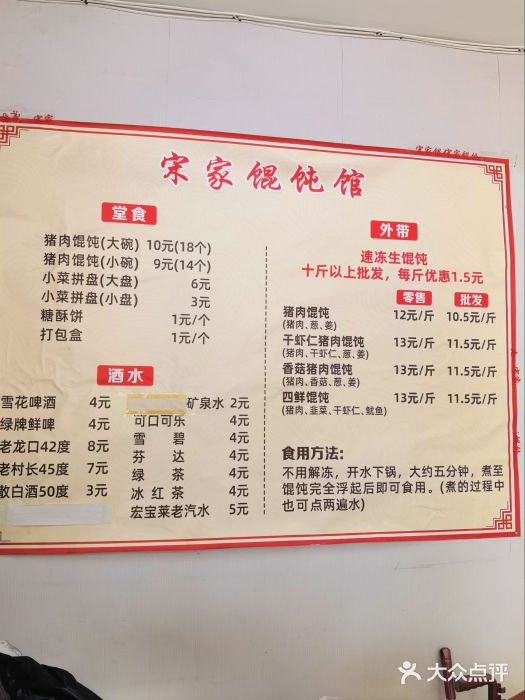 宋家馄饨馆
堂食
猪肉馄饨(大碗) 10元(18个)
猪肉馄饨(小碗) 9元(14个)
小菜拼盘(大盘) 6元
小菜拼盘(小盘) 3元
糖酥饼 1元/个
打包盒 1元/个
酒水
雪花啤酒 4元
绿牌鲜啤 4元
老龙口42度 8元
老村长45度 7元
散白酒50度 3元
矿泉水 2元
可口可乐 4元
雪碧 4元
芬达 4元
绿茶 4元
冰红茶 4元
宏宝莱老汽水 5元
外带
速冻生馄饨
十斤以上批发，每斤优惠1.5元
零售 批发
猪肉馄饨 12元/斤 10.5元/斤
(猪肉、葱、姜)
干虾仁猪肉馄饨 13元/斤 11.5元/斤
(猪肉、干虾仁、葱、姜)
香菇猪肉馄饨 13元/斤 11.5元/斤
(猪肉、香菇、葱、姜)
四鲜馄饨 13元/斤 11.5元/斤
(猪肉、韭菜、干虾仁、鱿鱼)
食用方法:
不用解冻，开水下锅，大约五分钟，煮至
馄饨完全浮起后即可食用。(煮的过程中
也可点两遍水)
大众点评